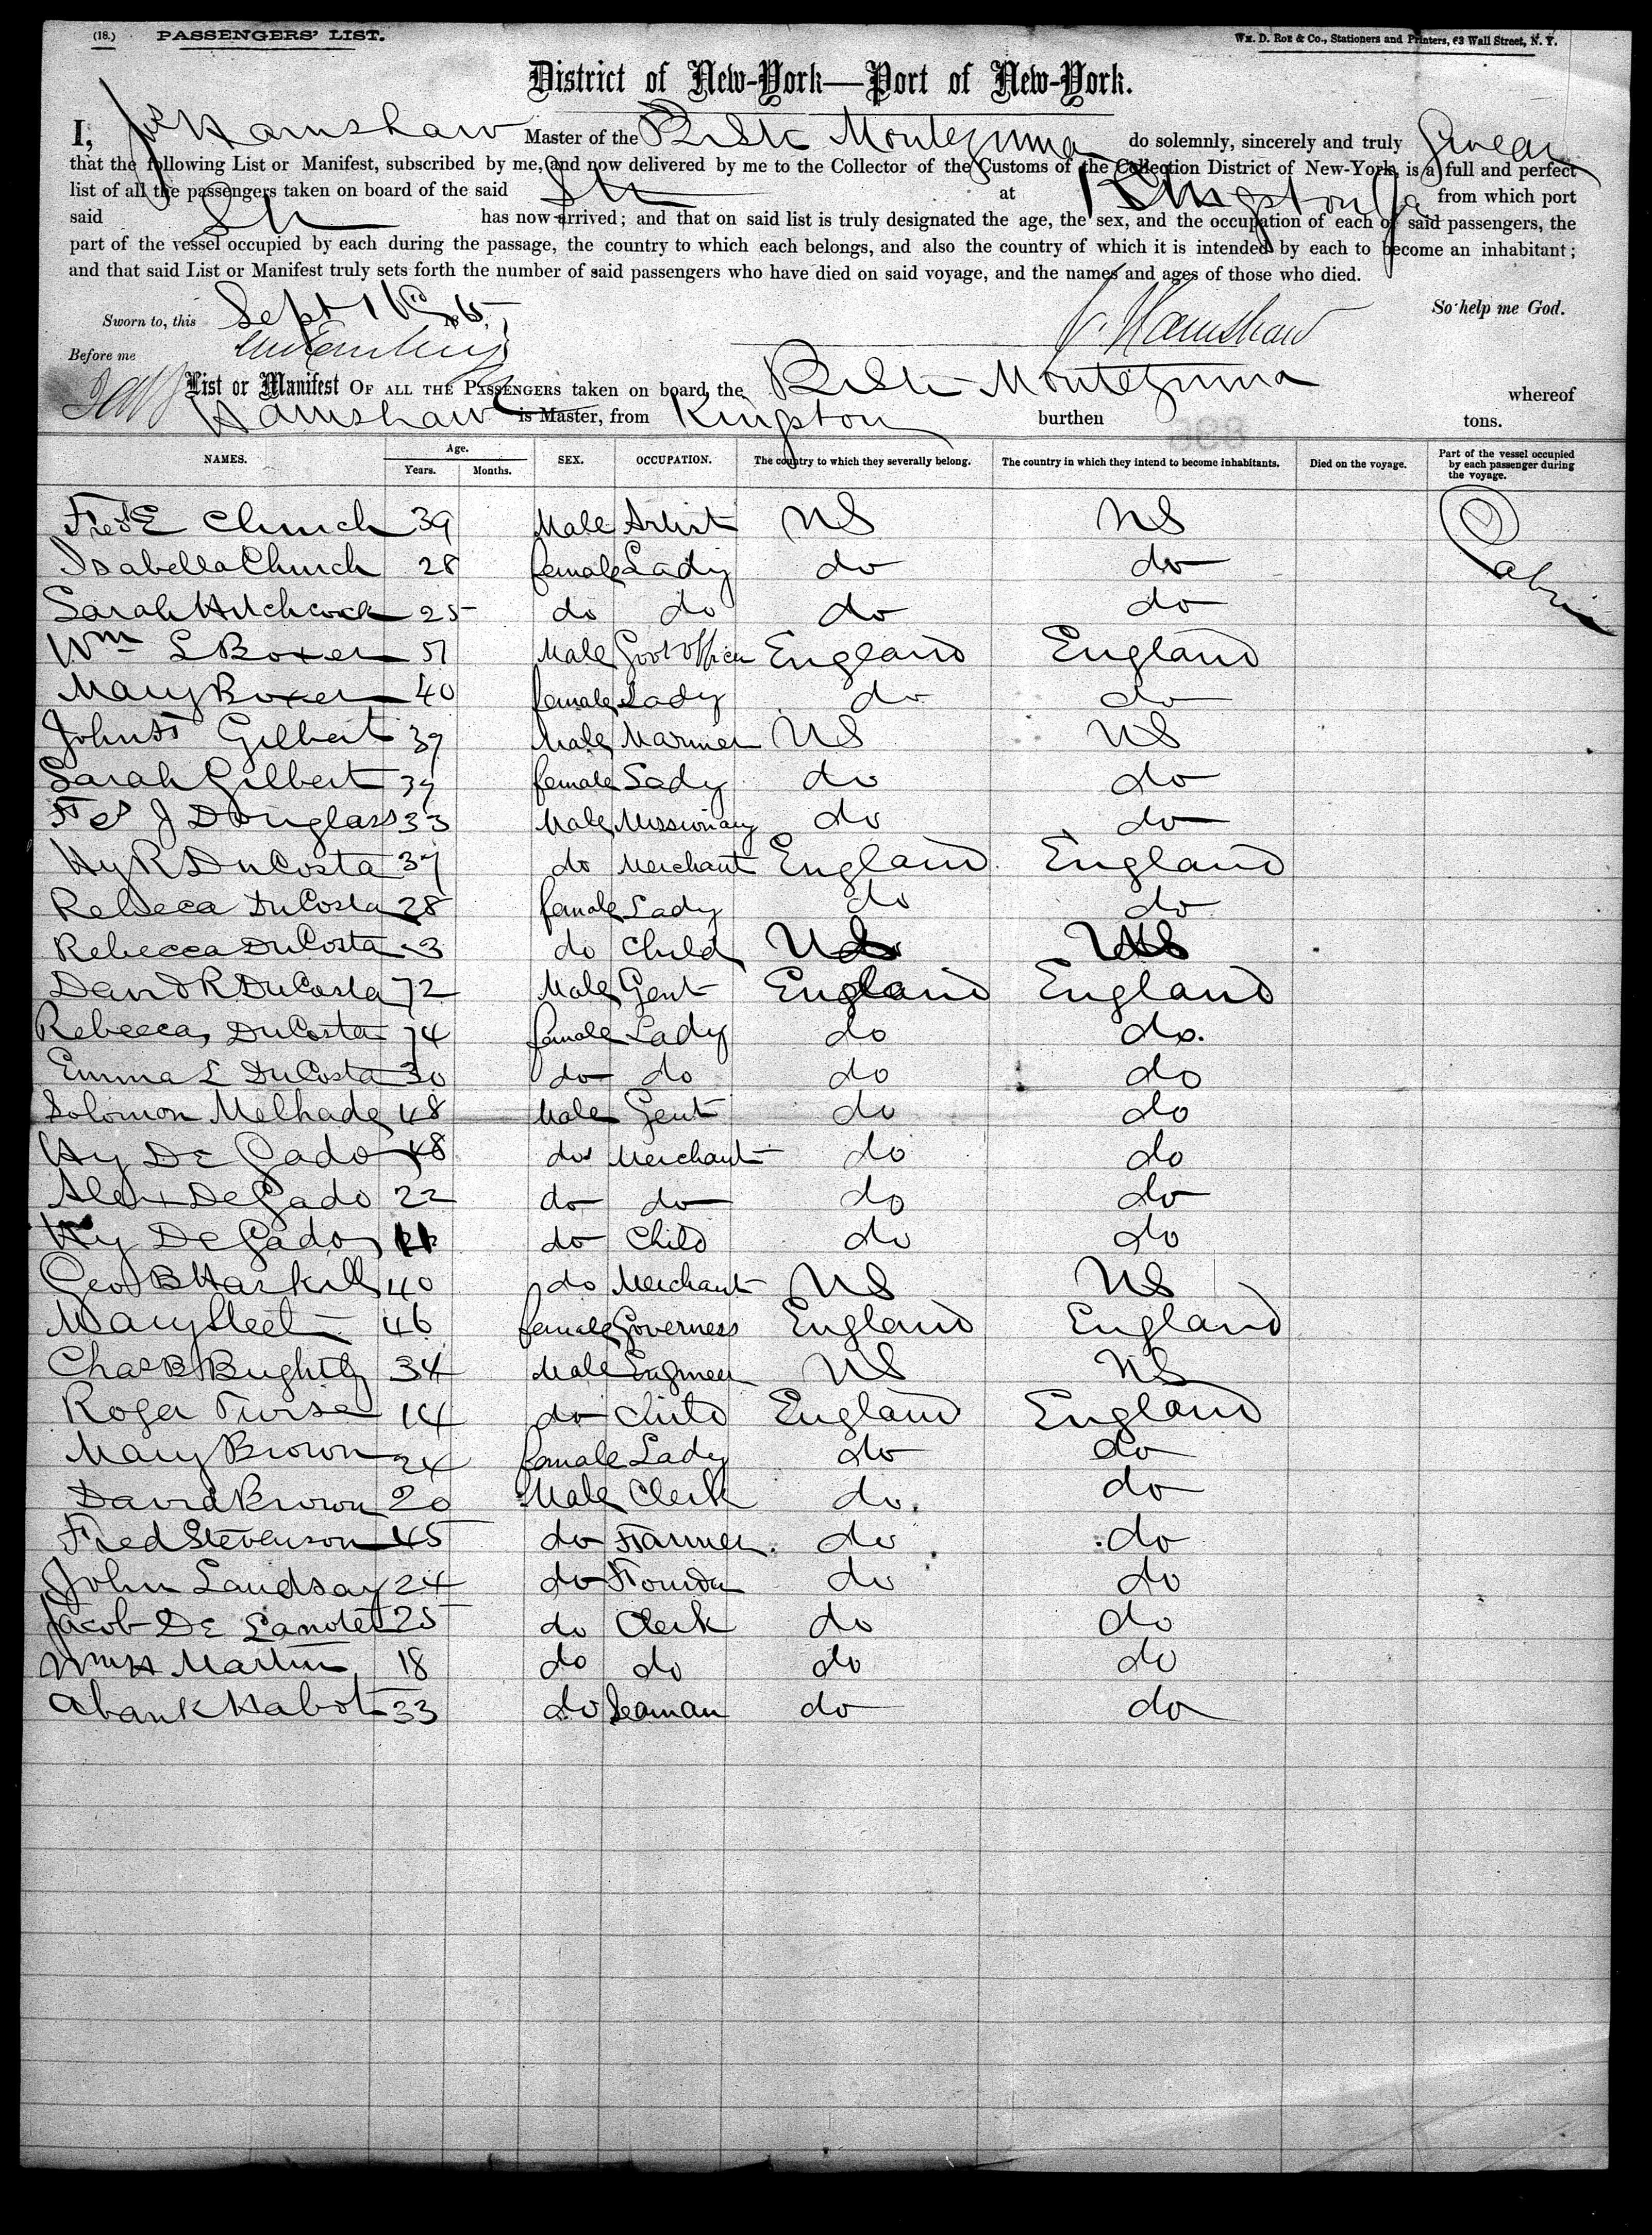 (18.) PASSENGERS' LIST. Wm. D. Roe & Co., Stationers and Printers, 63 Wall Street, N. Y.
District of New-York—Port of New-York.
I, Jno Hamshaw Master of the Br Str Montezuma do solemnly, sincerely and truly Swear
that the following List or Manifest, subscribed by me, and now delivered by me to the Collector of the Customs of the Collection District of New-York, is a full and perfect
list of all the passengers taken on board of the said Str at Kingston Ja from which port
said Str has now arrived; and that on said list is truly designated the age, the sex, and the occupation of each of said passengers, the
part of the vessel occupied by each during the passage, the country to which each belongs, and also the country of which it is intended by each to become an inhabitant;
and that said List or Manifest truly sets forth the number of said passengers who have died on said voyage, and the names and ages of those who died.
Sworn to, this Sept 186 So help me God.
J. Hamshaw
Before me
List or Manifest OF ALL THE PASSENGERS taken on board, the Br Str Montezuma whereof
Hamshaw is Master, from Kingston burthen tons.
NAMES. Age. Years. Months. SEX. OCCUPATION. The country to which they severally belong. The country in which they intend to become inhabitants. Died on the voyage. Part of the vessel occupied by each passenger during the voyage.
Fred E Church 39 Male Artist US US Cabin
Isabella Church 28 female Lady do do
Sarah Hitchcock 25 do do do do
Wm L Boxer 51 Male Govt Officer England England
Mary Boxer 40 female Lady do do
John F Gilbert 39 Male Mariner US US
Sarah Gilbert 39 female Lady do do
J Douglass 33 Male Missionary do do
Hy R DuCosta 37 do Merchant England England
Rebeca DuCosta 28 female Lady do do
Rebecca DuCosta 3 do Child US US
David R DuCosta 72 Male Gent England England
Rebecca DuCosta 74 female Lady do do.
Emma L DuCosta 30 do do do do
Solomon Melhado 48 Male Gent do do
Hy De Cado 48 do Merchant do do
Alex DeCado 22 do do do do
Hy De Cado 11 do Child do do
Geo B Haskell 40 do Merchant US US
Mary Steet 46 female Governess England England
Chas B Brightly 34 Male Engineer US US
Roger Furse 14 do Child England England
Mary Brown 24 female Lady do do
David Brown 20 Male Clerk do do
Fred Stevenson 45 do Farmer do do
John Landsay 24 do do do
Jacob De 25 do Clerk do do
Wm H Martin 18 do do do do
33 do Seaman do do